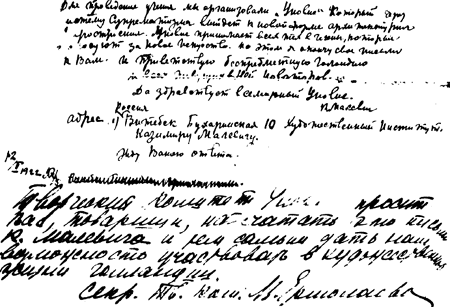 Для проведения учения мы организовали "Уновис" который
потому Супрематизм в новой форме архитектурн
построения. Уновис принимает всех тех в члены, которые
за новое искусство. на этом я кончу свое письмо
к Вам. и приветствую беспредметную Голландию
и всех в ней новаторов.
Да здравствует всемирный Уновис.
Россия К Малевич
адрес: г) Витебск Бухаринская 10 Художественный Институт.
Казимиру Малевичу.
Жду Вашего ответа.
12
1922
Творческий комитет Уновис просит
Вас, товарищи, напечатать это письмо
К. Малевича и тем самым дать нам
возможность участвовать в художественной
жизни голландии.
секр. Тв. Ком. М. Ермолаева